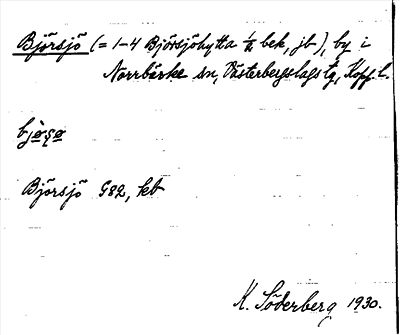 Björsjö (= 1-4 Björsjöhytta 1/4 bek, jb), by i
Norrbärke sn, Västerbergslags tg, Kopp. l.
Björsjö G82, kb
K. Söderberg 1930.